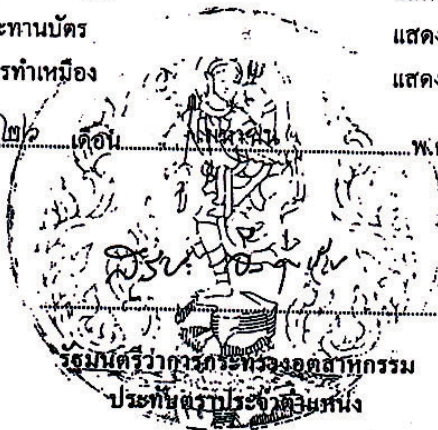 ะทานบัตร แสดง
รทำเหมือง แสดง
๒๖ เดือน พ.
รัฐมนตรีว่าการกระทรวงอุตสาหกรรม
ประทับตราประจำตำแหน่ง